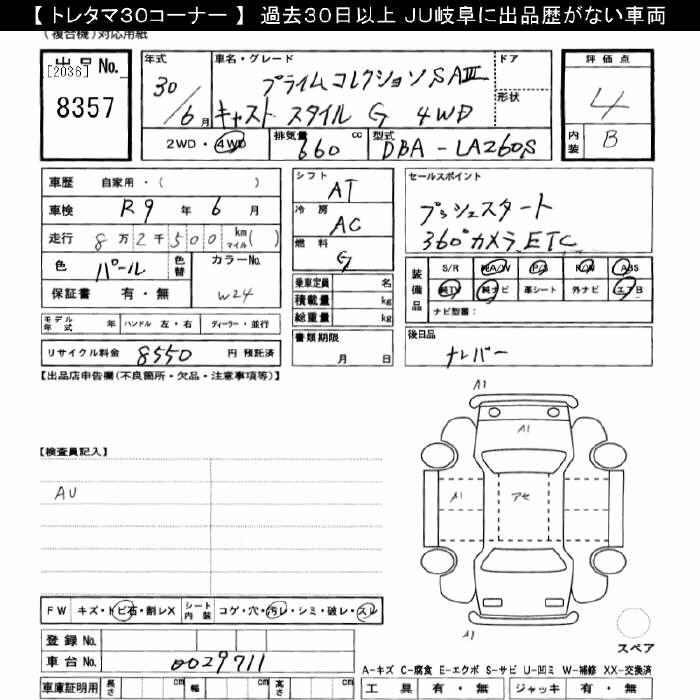 【トレタマ30コーナー】過去30日以上 JU岐阜に出品歴がない車両
(複合機)対応用紙
出品No.
[2036]
8357
年式
30/6月
車名・グレード
プライムコレクションSAⅢ
キャスト スタイル G 4WD
ドア
形状
2WD・4WD
排気量
660 cc
型式
DBA-LA260S
評価点
4
内装
B
車歴 自家用・( )
車検 R9年6月
走行 8万2千500 km マイル( )
色 パール 色替 カラーNo. W24
保証書 有・無
モデル年式 年 ハンドル 左・右 ディーラー・並行
リサイクル料金 8550 円 預託済
シフト AT
冷房 AC
燃料 G
乗車定員 名
積載量 kg
総重量 kg
書類期限
月 日
セールスポイント
プッシュスタート
360°カメラ ETC
装備品 S/R 純A/W P/S R/W ABS
純TV 純ナビ 革シート 外ナビ エアB
ナビ型番:
後日品
ナレバー
【出品店申告欄(不良箇所・欠品・注意事項等)】
【検査員記入】
AU
A1
A1
A1
アセ
A1
スペア
FW キズ・トビ石・割レX シート内装 コゲ・穴・汚レ・シミ・破レ・スレ
登録No.
車台No. 0029711
車庫証明用 長さ cm 幅 cm 高さ cm
A-キズ C-腐食 E-エクボ S-サビ U-凹ミ W-補修 XX-交換済
工具 有・無 ジャッキ 有・無